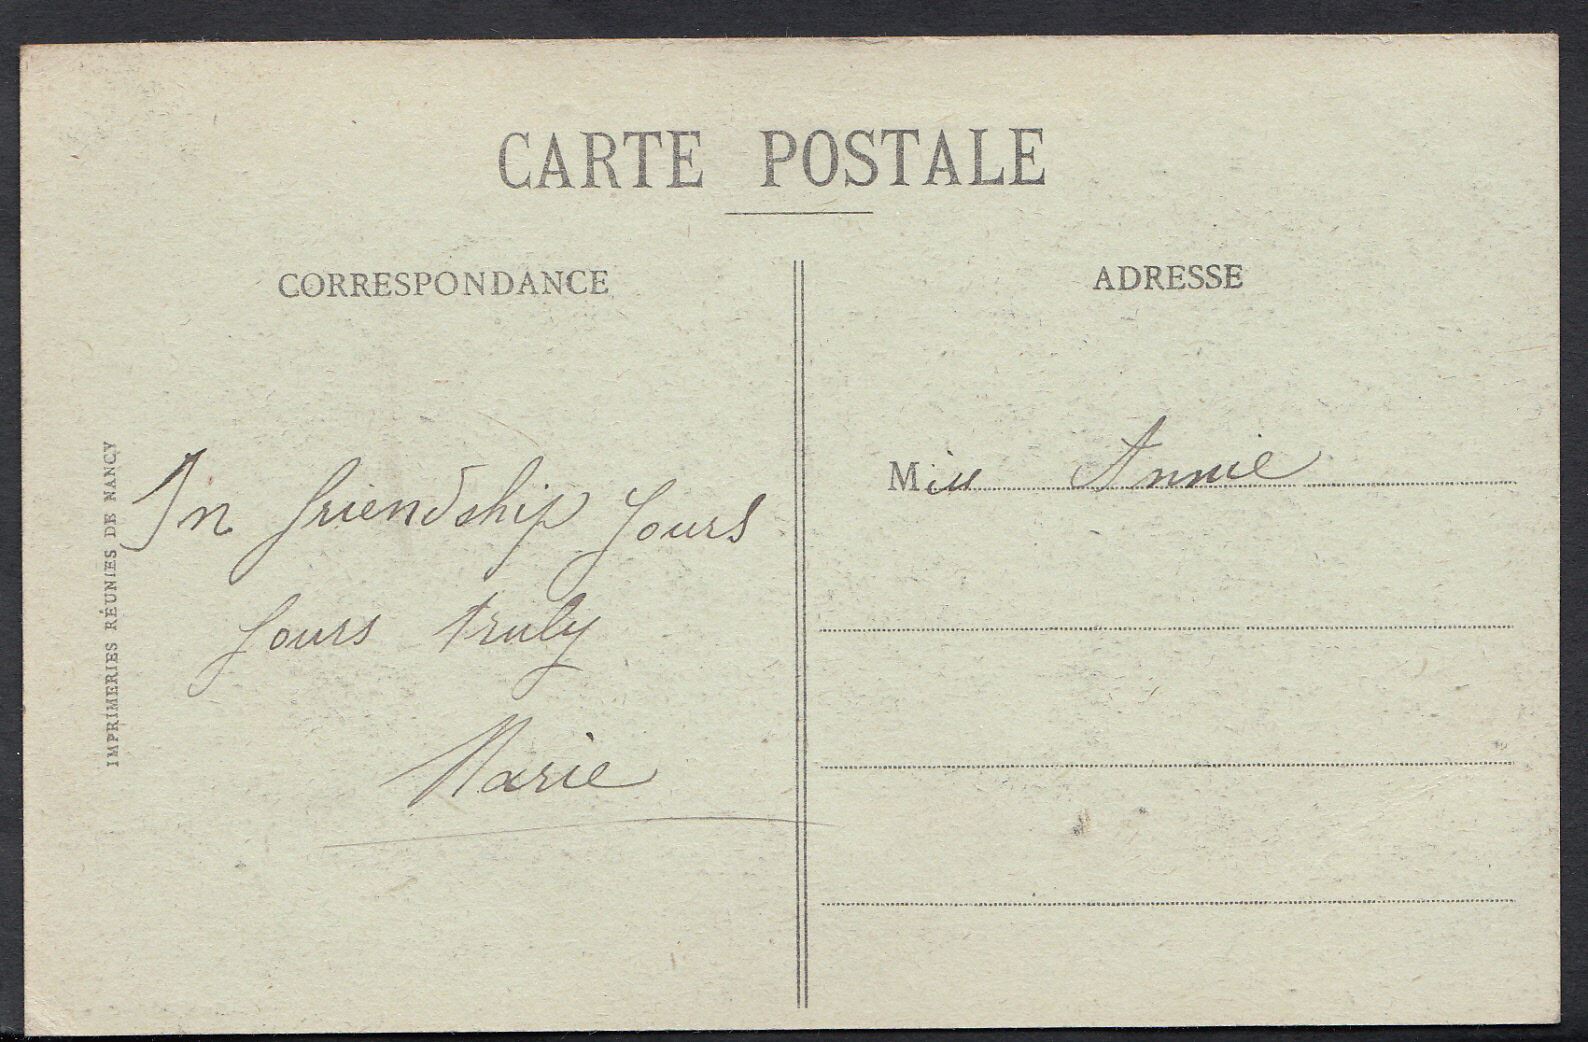 CARTE POSTALE
CORRESPONDANCE
ADRESSE
IMPRIMERIES RÉUNIES DE NANCY
In friendship Yours
Yours truly
Marie
Miss Annie